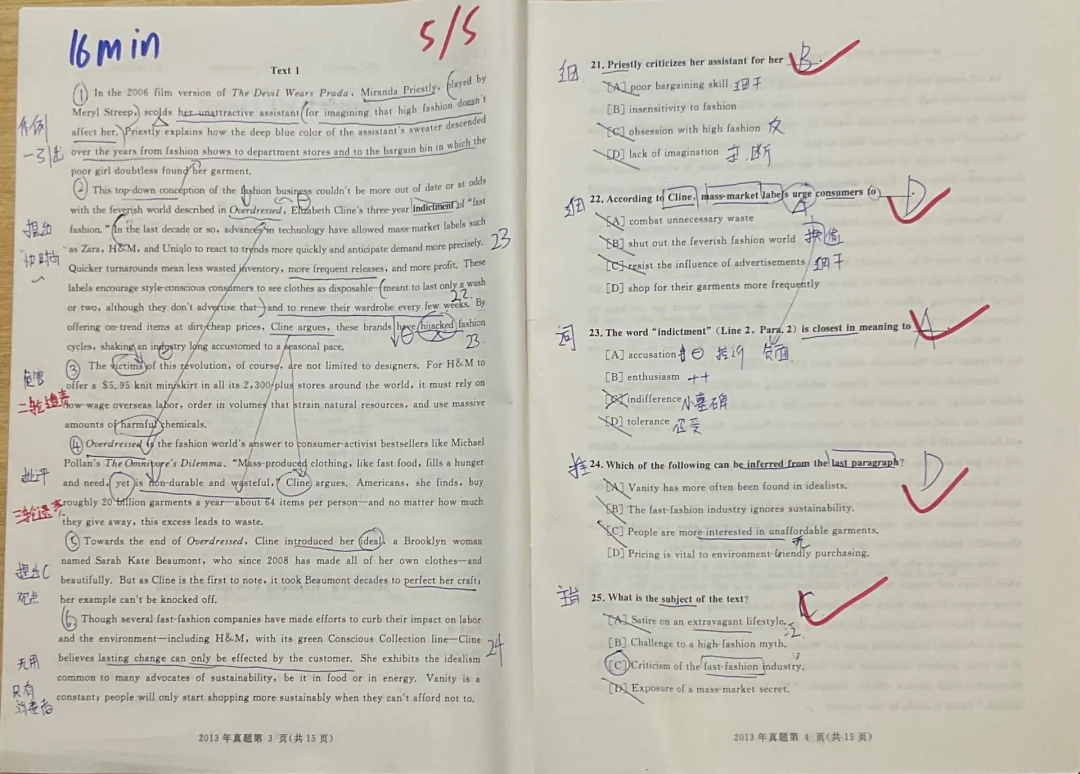 16min
5/5
Text 1
① In the 2006 film version of The Devil Wears Prada, Miranda Priestly, (played by
Meryl Streep,) scolds her unattractive assistant (for imagining that high fashion doesn't
affect her.) Priestly explains how the deep blue color of the assistant's sweater descended
over the years from fashion shows to department stores and to the bargain bin in which the
poor girl doubtless found her garment.
② This top-down conception of the fashion business couldn't be more out of date or at odds
with the feverish world described in Overdressed, Elizabeth Cline's three-year indictment of "fast
fashion." In the last decade or so, advances in technology have allowed mass-market labels such
as Zara, H&M, and Uniqlo to react to trends more quickly and anticipate demand more precisely. 23
Quicker turnarounds mean less wasted inventory, more frequent releases, and more profit. These
labels encourage style-conscious consumers to see clothes as disposable—(meant to last only a wash
or two, although they don't advertise that—) and to renew their wardrobe every few weeks. By 22.
offering on-trend items at dirt-cheap prices, Cline argues, these brands have hijacked fashion
cycles, shaking an industry long accustomed to a seasonal pace. 23.
③ The victims of this revolution, of course, are not limited to designers. For H&M to
offer a $5.95 knit miniskirt in all its 2,300-plus stores around the world, it must rely on
low-wage overseas labor, order in volumes that strain natural resources, and use massive
amounts of harmful chemicals.
④ Overdressed is the fashion world's answer to consumer-activist bestsellers like Michael
Pollan's The Omnivore's Dilemma. "Mass-produced clothing, like fast food, fills a hunger
and need, yet is non-durable and wasteful," Cline argues. Americans, she finds, buy
roughly 20 billion garments a year—about 64 items per person—and no matter how much
they give away, this excess leads to waste.
⑤ Towards the end of Overdressed, Cline introduced her ideal, a Brooklyn woman
named Sarah Kate Beaumont, who since 2008 has made all of her own clothes—and
beautifully. But as Cline is the first to note, it took Beaumont decades to perfect her craft;
her example can't be knocked off.
⑥ Though several fast-fashion companies have made efforts to curb their impact on labor
and the environment—including H&M, with its green Conscious Collection line—Cline 24
believes lasting change can only be effected by the customer. She exhibits the idealism
common to many advocates of sustainability, be it in food or in energy. Vanity is a
constant; people will only start shopping more sustainably when they can't afford not to.
举例
一引出
"快时尚"
危害
批评
提出C
观点
无用
只有
消费者
2013年真题第 3 页(共15页)
细 21. Priestly criticizes her assistant for her B.
[A] poor bargaining skill 细干
[B] insensitivity to fashion
[C] obsession with high fashion 反
[D] lack of imagination
细 22. According to Cline, mass-market labels urge consumers to D.
[A] combat unnecessary waste
[B] shut out the feverish fashion world
[C] resist the influence of advertisements 细干
[D] shop for their garments more frequently
词 23. The word "indictment" (Line 2, Para. 2) is closest in meaning to A
[A] accusation 负面
[B] enthusiasm ++
[C] indifference
[D] tolerance 忍受
推 24. Which of the following can be inferred from the last paragraph? D
[A] Vanity has more often been found in idealists.
[B] The fast-fashion industry ignores sustainability.
[C] People are more interested in unaffordable garments.
无
[D] Pricing is vital to environment-friendly purchasing.
25. What is the subject of the text? C
[A] Satire on an extravagant lifestyle.
[B] Challenge to a high-fashion myth.
[C] Criticism of the fast-fashion industry.
[D] Exposure of a mass-market secret.
2013年真题第 4 页(共15页)